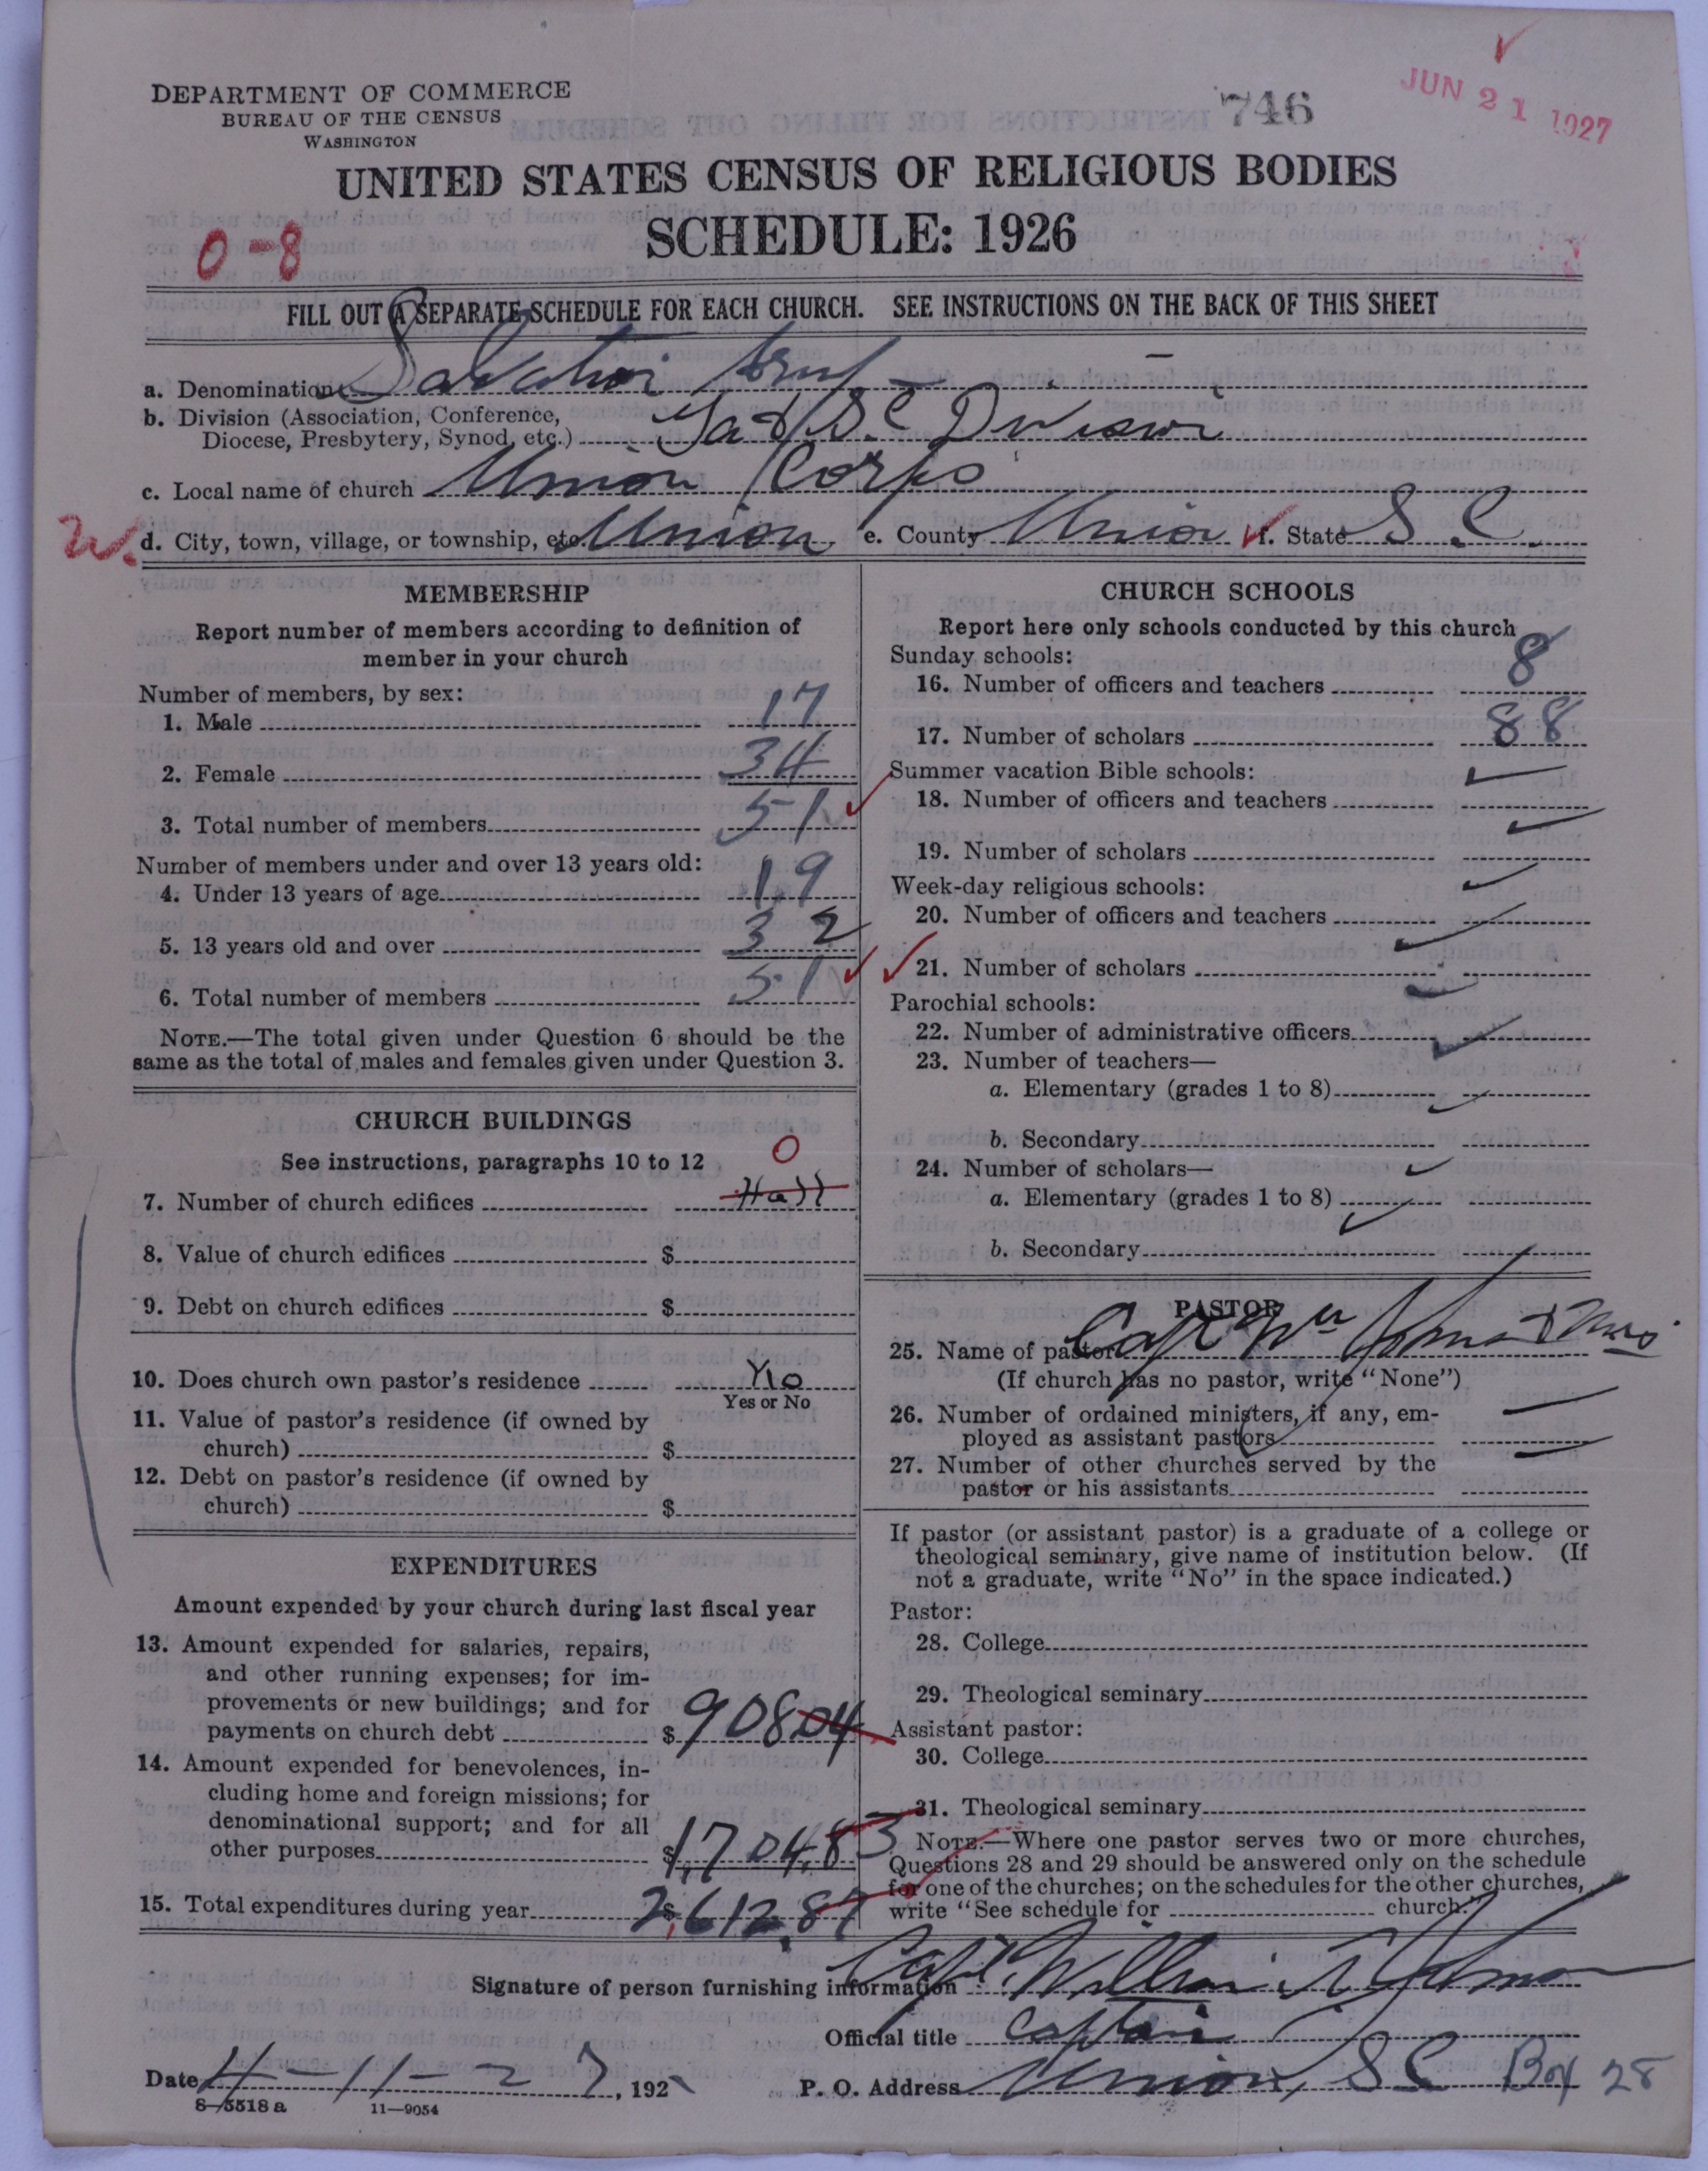 DEPARTMENT OF COMMERCE
BUREAU OF THE CENSUS
WASHINGTON
746
JUN 21 1927
UNITED STATES CENSUS OF RELIGIOUS BODIES
SCHEDULE: 1926
0-8
FILL OUT A SEPARATE SCHEDULE FOR EACH CHURCH. SEE INSTRUCTIONS ON THE BACK OF THIS SHEET
a. Denomination Salvation Army
b. Division (Association, Conference,
Diocese, Presbytery, Synod, etc.) Ga & S.C Division
c. Local name of church Union Corps
d. City, town, village, or township, etc. Union e. County Union f. State S.C.
MEMBERSHIP
Report number of members according to definition of
member in your church
Number of members, by sex:
1. Male 17
2. Female 34
3. Total number of members 51
Number of members under and over 13 years old:
4. Under 13 years of age 19
5. 13 years old and over 32
6. Total number of members 51
NOTE.—The total given under Question 6 should be the
same as the total of males and females given under Question 3.
CHURCH BUILDINGS
See instructions, paragraphs 10 to 12
0
7. Number of church edifices Hall
8. Value of church edifices $
9. Debt on church edifices $
10. Does church own pastor's residence No
Yes or No
11. Value of pastor's residence (if owned by
church) $
12. Debt on pastor's residence (if owned by
church) $
EXPENDITURES
Amount expended by your church during last fiscal year
13. Amount expended for salaries, repairs,
and other running expenses; for im-
provements or new buildings; and for
payments on church debt $ 908 04
14. Amount expended for benevolences, in-
cluding home and foreign missions; for
denominational support; and for all
other purposes $ 1,704.83
15. Total expenditures during year $ 2,612.87
CHURCH SCHOOLS
Report here only schools conducted by this church
Sunday schools:
16. Number of officers and teachers 8
17. Number of scholars 88
Summer vacation Bible schools:
18. Number of officers and teachers
19. Number of scholars
Week-day religious schools:
20. Number of officers and teachers
21. Number of scholars
Parochial schools:
22. Number of administrative officers
23. Number of teachers—
a. Elementary (grades 1 to 8)
b. Secondary
24. Number of scholars—
a. Elementary (grades 1 to 8)
b. Secondary
PASTOR
25. Name of pastor Capt Wm & Mrs
(If church has no pastor, write "None")
26. Number of ordained ministers, if any, em-
ployed as assistant pastors
27. Number of other churches served by the
pastor or his assistants
If pastor (or assistant pastor) is a graduate of a college or
theological seminary, give name of institution below. (If
not a graduate, write "No" in the space indicated.)
Pastor:
28. College
29. Theological seminary
Assistant pastor:
30. College
31. Theological seminary
NOTE.—Where one pastor serves two or more churches,
Questions 28 and 29 should be answered only on the schedule
for one of the churches; on the schedules for the other churches,
write "See schedule for church."
Signature of person furnishing information Capt. William
Official title Captain
Date 4-11-27, 192 P. O. Address Union, SC Box 28
8-5518 a 11—9054